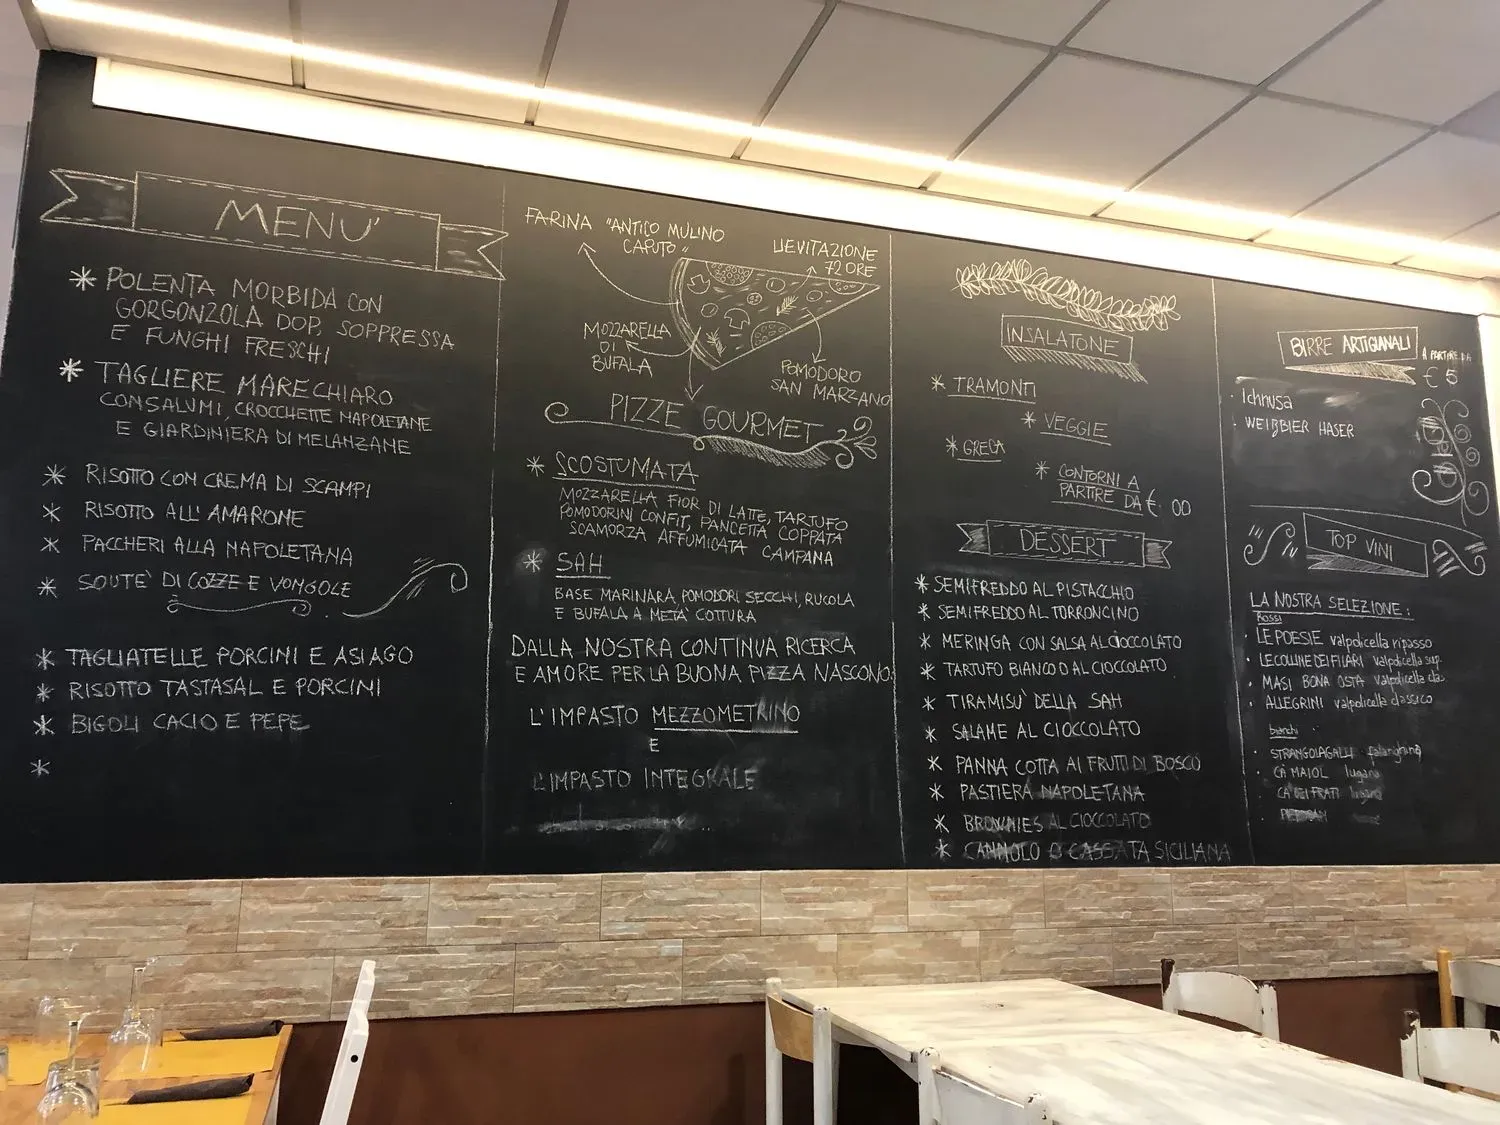 MENU'
* POLENTA MORBIDA CON
GORGONZOLA DOP, SOPPRESSA
E FUNGHI FRESCHI
* TAGLIERE MARECHIARO
CON SALUMI, CROCCHETTE NAPOLETANE
E GIARDINIERA DI MELANZANE
* RISOTTO CON CREMA DI SCAMPI
* RISOTTO ALL'AMARONE
* PACCHERI ALLA NAPOLETANA
* SOUTE' DI COZZE E VONGOLE
* TAGLIATELLE PORCINI E ASIAGO
* RISOTTO TASTASAL E PORCINI
* BIGOLI CACIO E PEPE
*
FARINA "ANTICO MULINO
CAPUTO"
LIEVITAZIONE
72 ORE
MOZZARELLA
DI
BUFALA
POMODORO
SAN MARZANO
PIZZE GOURMET
* SCOSTUMATA
MOZZARELLA FIOR DI LATTE, TARTUFO
POMODORINI CONFIT, PANCETTA COPPATA
SCAMORZA AFFUMICATA CAMPANA
* SAH
BASE MARINARA, POMODORI SECCHI, RUCOLA
E BUFALA A META' COTTURA
DALLA NOSTRA CONTINUA RICERCA
E AMORE PER LA BUONA PIZZA NASCONO:
L'IMPASTO MEZZOMETRINO
E
L'IMPASTO INTEGRALE
INSALATONE
* TRAMONTI
* VEGGIE
* GRECA
* CONTORNI A
PARTIRE DA €. 00
DESSERT
* SEMIFREDDO AL PISTACCHIO
* SEMIFREDDO AL TORRONCINO
* MERINGA CON SALSA AL CIOCCOLATO
* TARTUFO BIANCO O AL CIOCCOLATO
* TIRAMISU' DELLA SAH
* SALAME AL CIOCCOLATO
* PANNA COTTA AI FRUTTI DI BOSCO
* PASTIERA NAPOLETANA
* BROWNIES AL CIOCCOLATO
* CANNOLO O CASSATA SICILIANA
BIRRE ARTIGIANALI
A PARTIRE DA
€ 5
· Ichnusa
· WEIßBIER HASER
TOP VINI
LA NOSTRA SELEZIONE:
Rossi
· LE POESIE valpolicella ripasso
· LE COLLINE DEI FILARI valpolicella sup.
· MASI BONA OSTA valpolicella clas.
· ALLEGRINI valpolicella classico
bianchi
· STRANGOLAGALLI falanghina
· CÀ MAIOL lugana
· CÀ DEI FRATI lugana